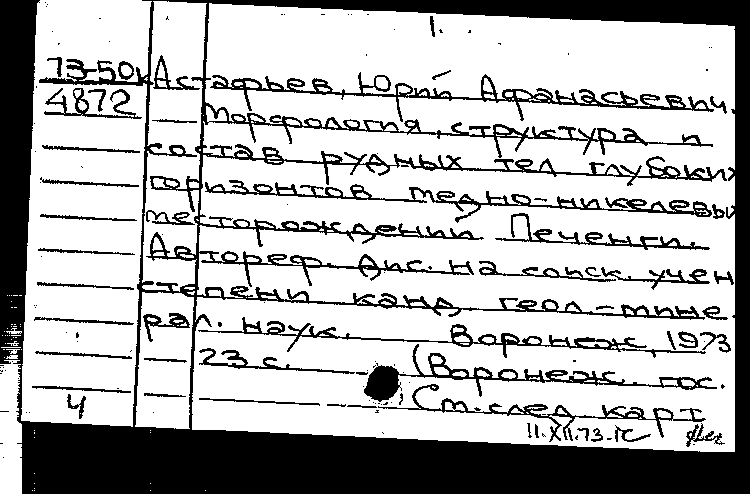 1.
73-50к Астафьев, Юрий Афанасьевич.
4872 Морфология, структура и
состав рудных тел глубоких
горизонтов медно-никелевых
месторождений Печенги.
Автореф. дис. на соиск. учен.
степени канд. геол.-мине-
рал. наук. Воронеж, 1973
23 с. (Воронеж. гос.
4 См. след. карт
11.XII.73